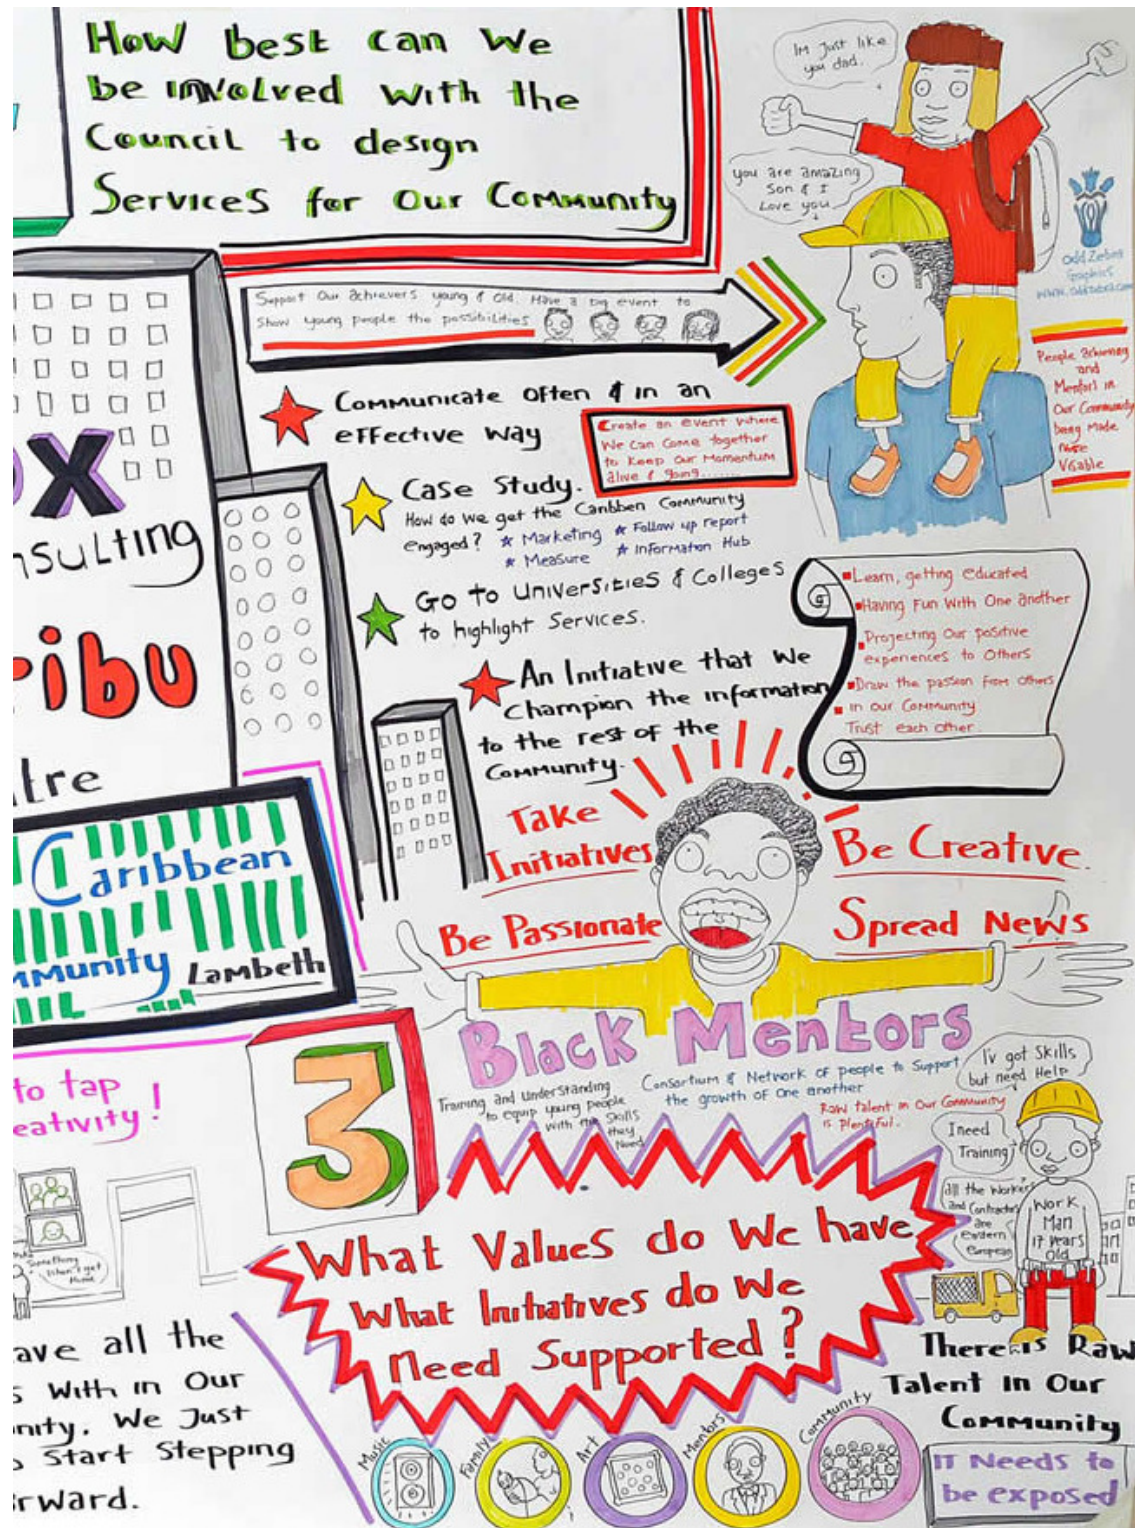 How best can We
be involved with the
Council to design
Services for Our Community
Im Just like
you dad.
you are amazing
Son & I
Love you
Odd Zebra
Graphics
Support Our achievers young & Old. Have a big event to
Show young people the possibilities
People achieving
and
Mentors in
Our Community
being Made
More
Communicate Often & in an
effective Way
Create an event Where
We Can Come together
to Keep Our Momentum
alive & going......
Case Study.
How do we get the Caribben Community
engaged? * Marketing * Follow up report
* Measure * Information Hub
Go to Universities & Colleges
to highlight Services.
Learn, getting educated
Having Fun With One another
Projecting Our positive
experiences to Others
Draw the passion from Others
In our Community
Trust each other.
An Initiative that We
Champion the information
to the rest of the
Community.
ox
nsulting
ribu
tre
Caribbean
mmunity Lambeth
Take
Initiatives
Be Creative.
Be Passionate
Spread News
Black Mentors
Training and Understanding
to equip young people
with the Skills
they
Need
Consortium & Network of people to Support
the growth of One another
Raw talent in Our Community
is plentiful.
I'v got Skills
but need Help
I need
Training
all the Workers
and Contractors
are
Eastern
European
Work
Man
17 years
Old
to tap
eativity!
Something
When I get
Home
3
What Values do We have
What Initiatives do We
Need Supported?
There is Raw
Talent In Our
Community
IT Needs to
be exposed
ave all the
s With in Our
nity. We Just
o Start Stepping
rward.
Music
Family
Art
Mentors
Community